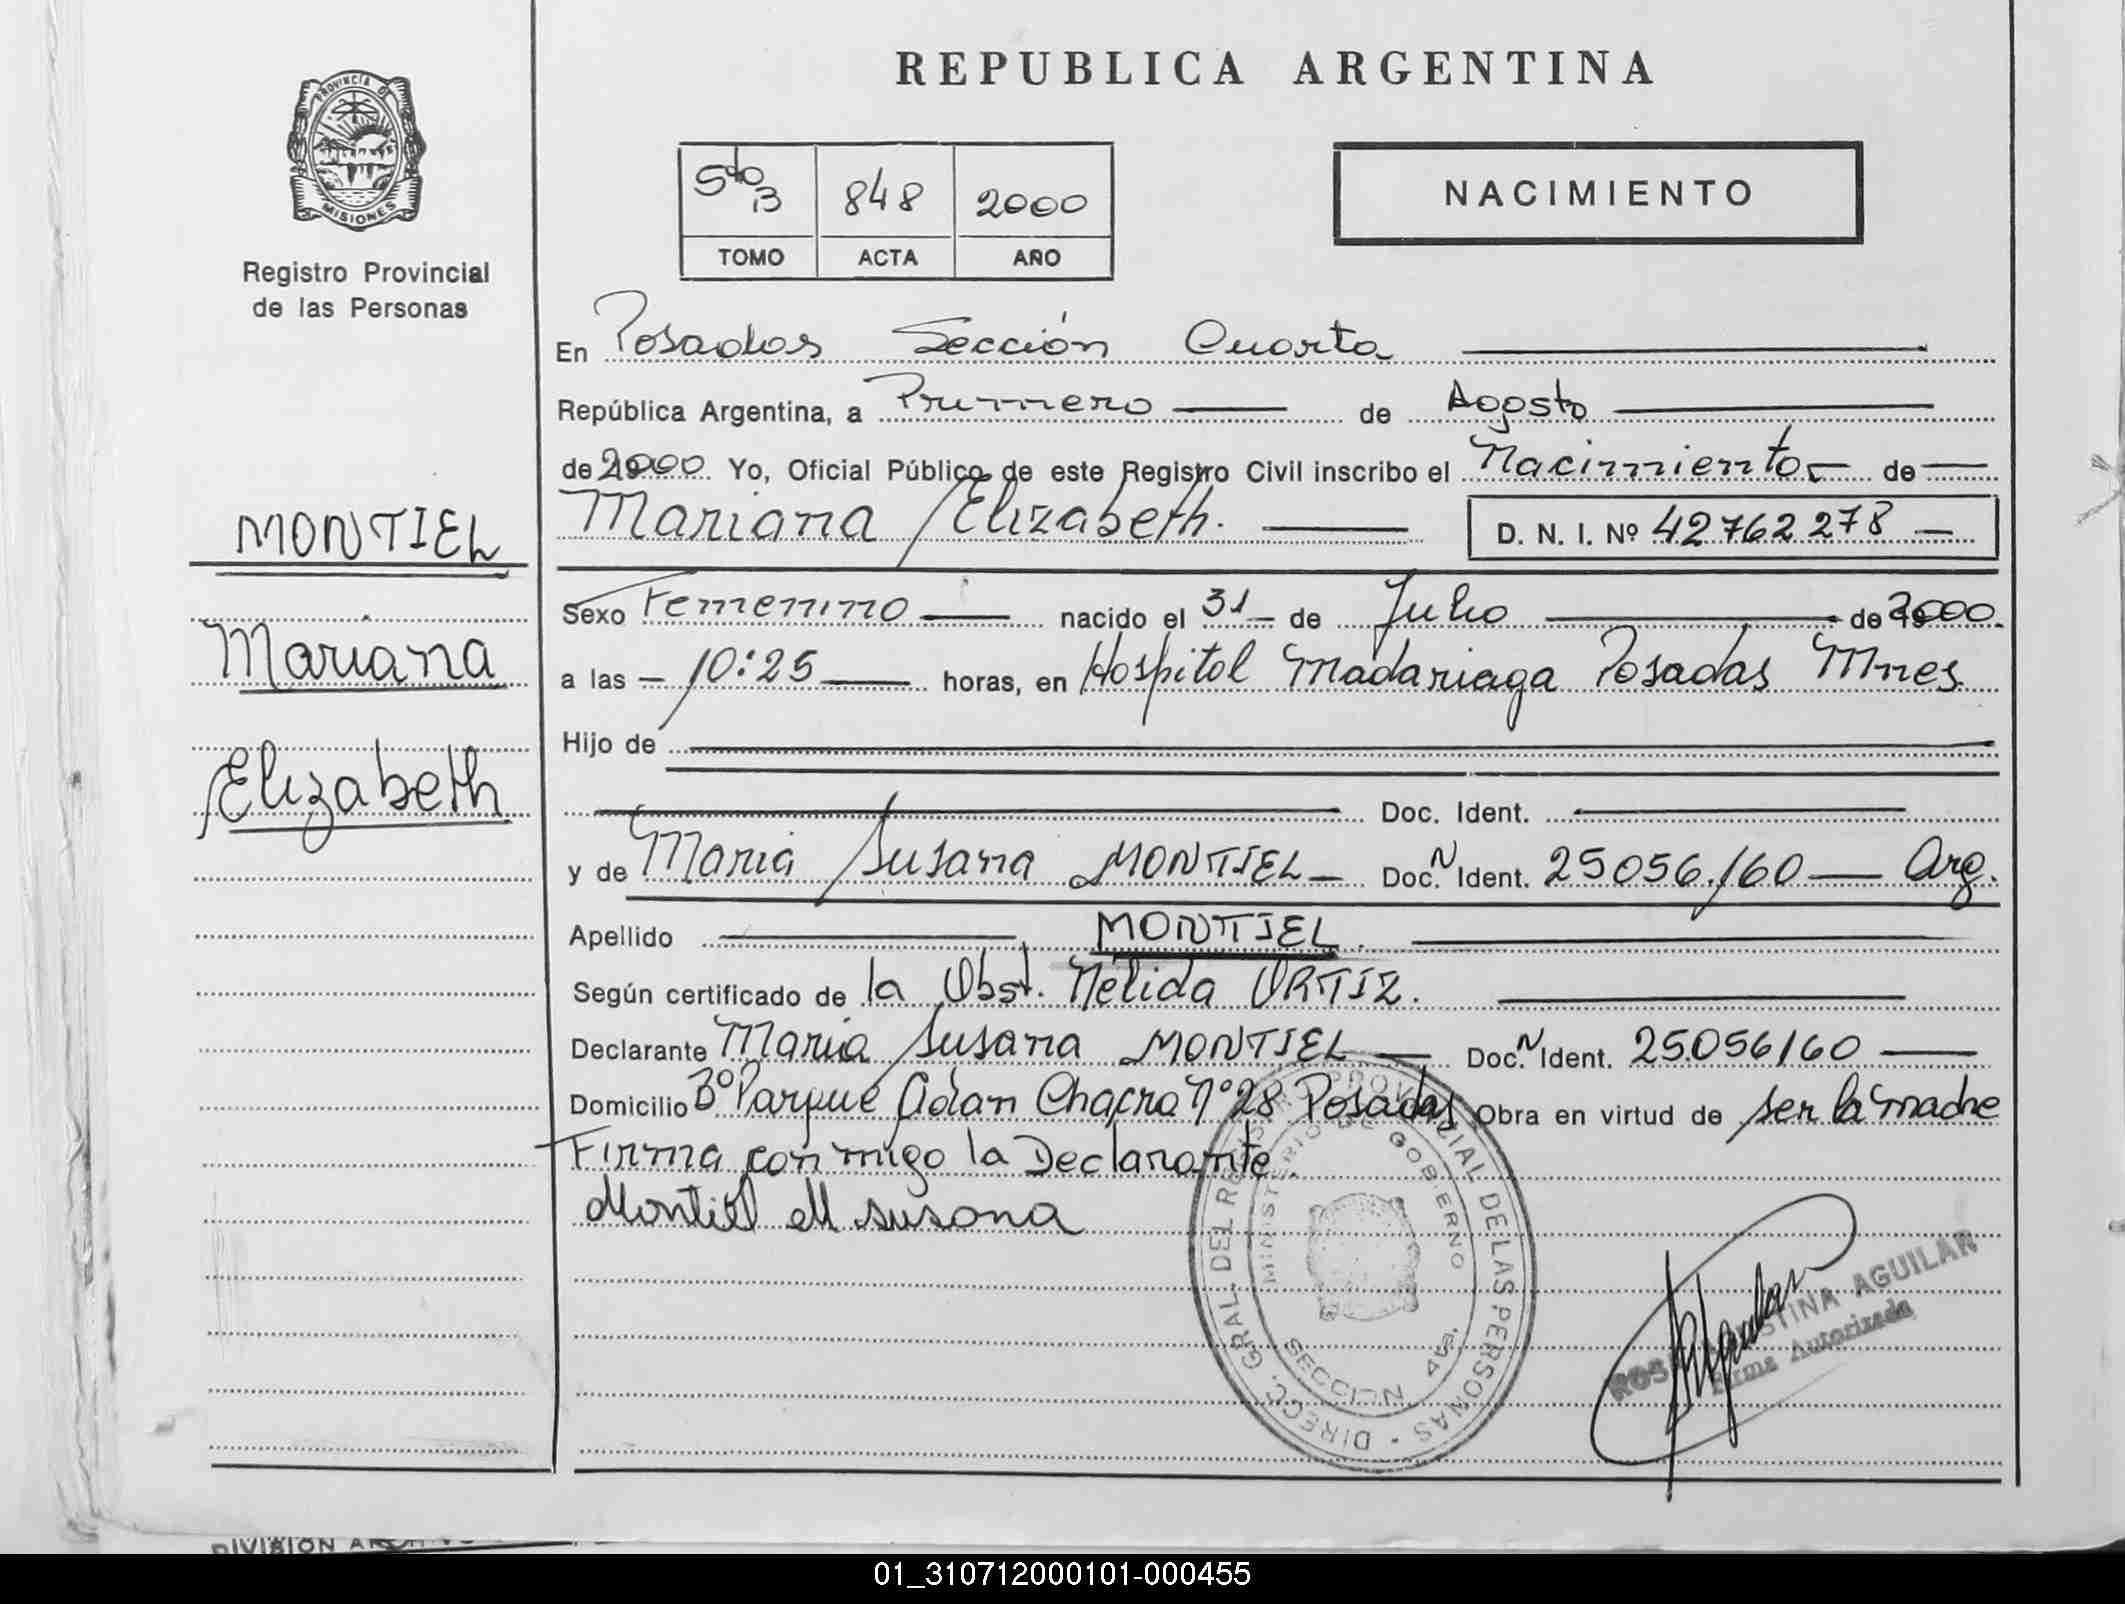 REPUBLICA ARGENTINA
PROVINCIA DE
MISIONES
Registro Provincial
de las Personas
5to B 848 2000
TOMO ACTA AÑO
NACIMIENTO
MONTIEL
Mariana
Elizabeth
En Posadas Sección Cuarta
República Argentina, a Primero de Agosto
de 2000 Yo, Oficial Público de este Registro Civil inscribo el Nacimiento de
Mariana Elizabeth. D. N. I. Nº 42762278
Sexo Femenino nacido el 31 de Julio de 2000.
a las 10:25 horas, en Hospital Madariaga Posadas Mnes
Hijo de
Doc. Ident.
y de Maria Susana MONTIEL Doc. N Ident. 25056.160 Arg.
Apellido MONTIEL.
Según certificado de la Obst. Nélida ORTIZ.
Declarante Maria Susana MONTIEL Doc. N Ident. 25.056160
Domicilio Bº Parque Adan Chacra Nº 28 Posadas Obra en virtud de ser la madre
Firma conmigo la Declarante
Montiel M susana
DIRECC. GRAL. DEL REGISTRO PROVINCIAL DE LAS PERSONAS
MINISTERIO DE GOBIERNO
SECCION 4ta.
AGUILAR
Firma Autorizada
01_310712000101-000455